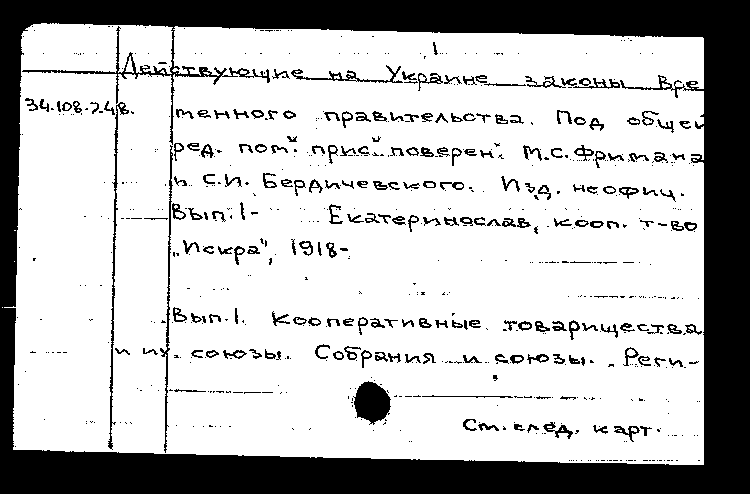 Действующие на Украине законы Вре
34.108.248.
менного правительства. Под общей
ред. пом. прис. поверен. М.С.Фримана
и С.И. Бердичевского. Изд. неофиц.
Вып.1- Екатеринослав, кооп. т-во
„Искра", 1918-
Вып.1. Кооперативные товарищества
и их союзы. Собрания и союзы. Реги-
См. след. карт.